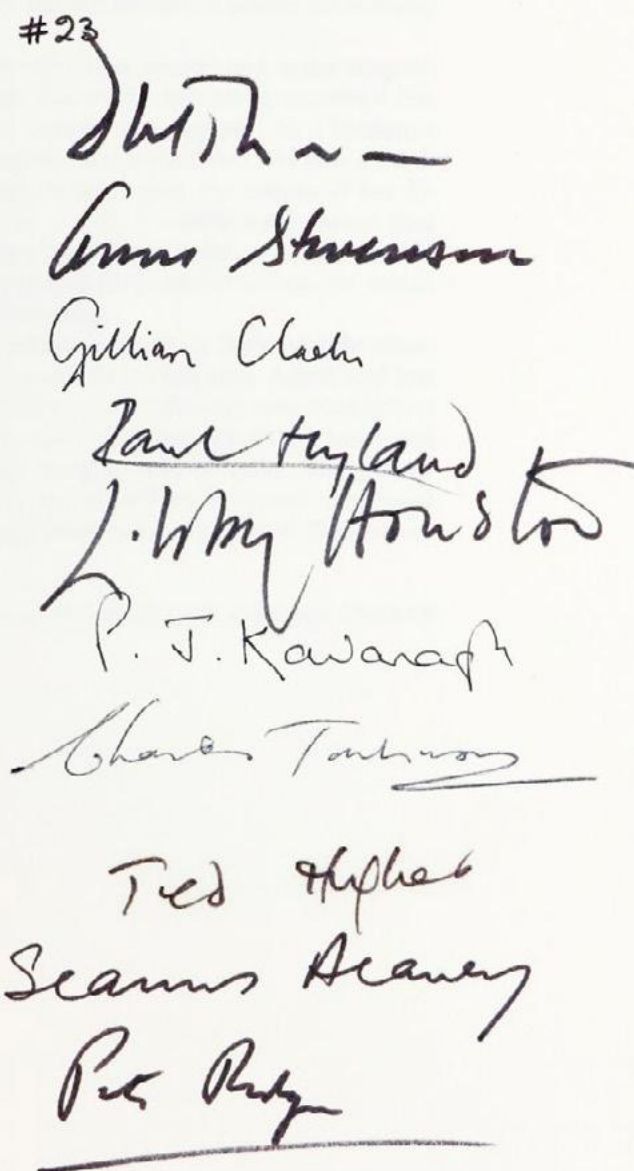 #23
Anne Stevenson
Gillian Clarke
Paul Hyland
Libby Houston
P. J. Kavanagh
Charles Tomlinson
Ted Hughes
Seamus Heaney